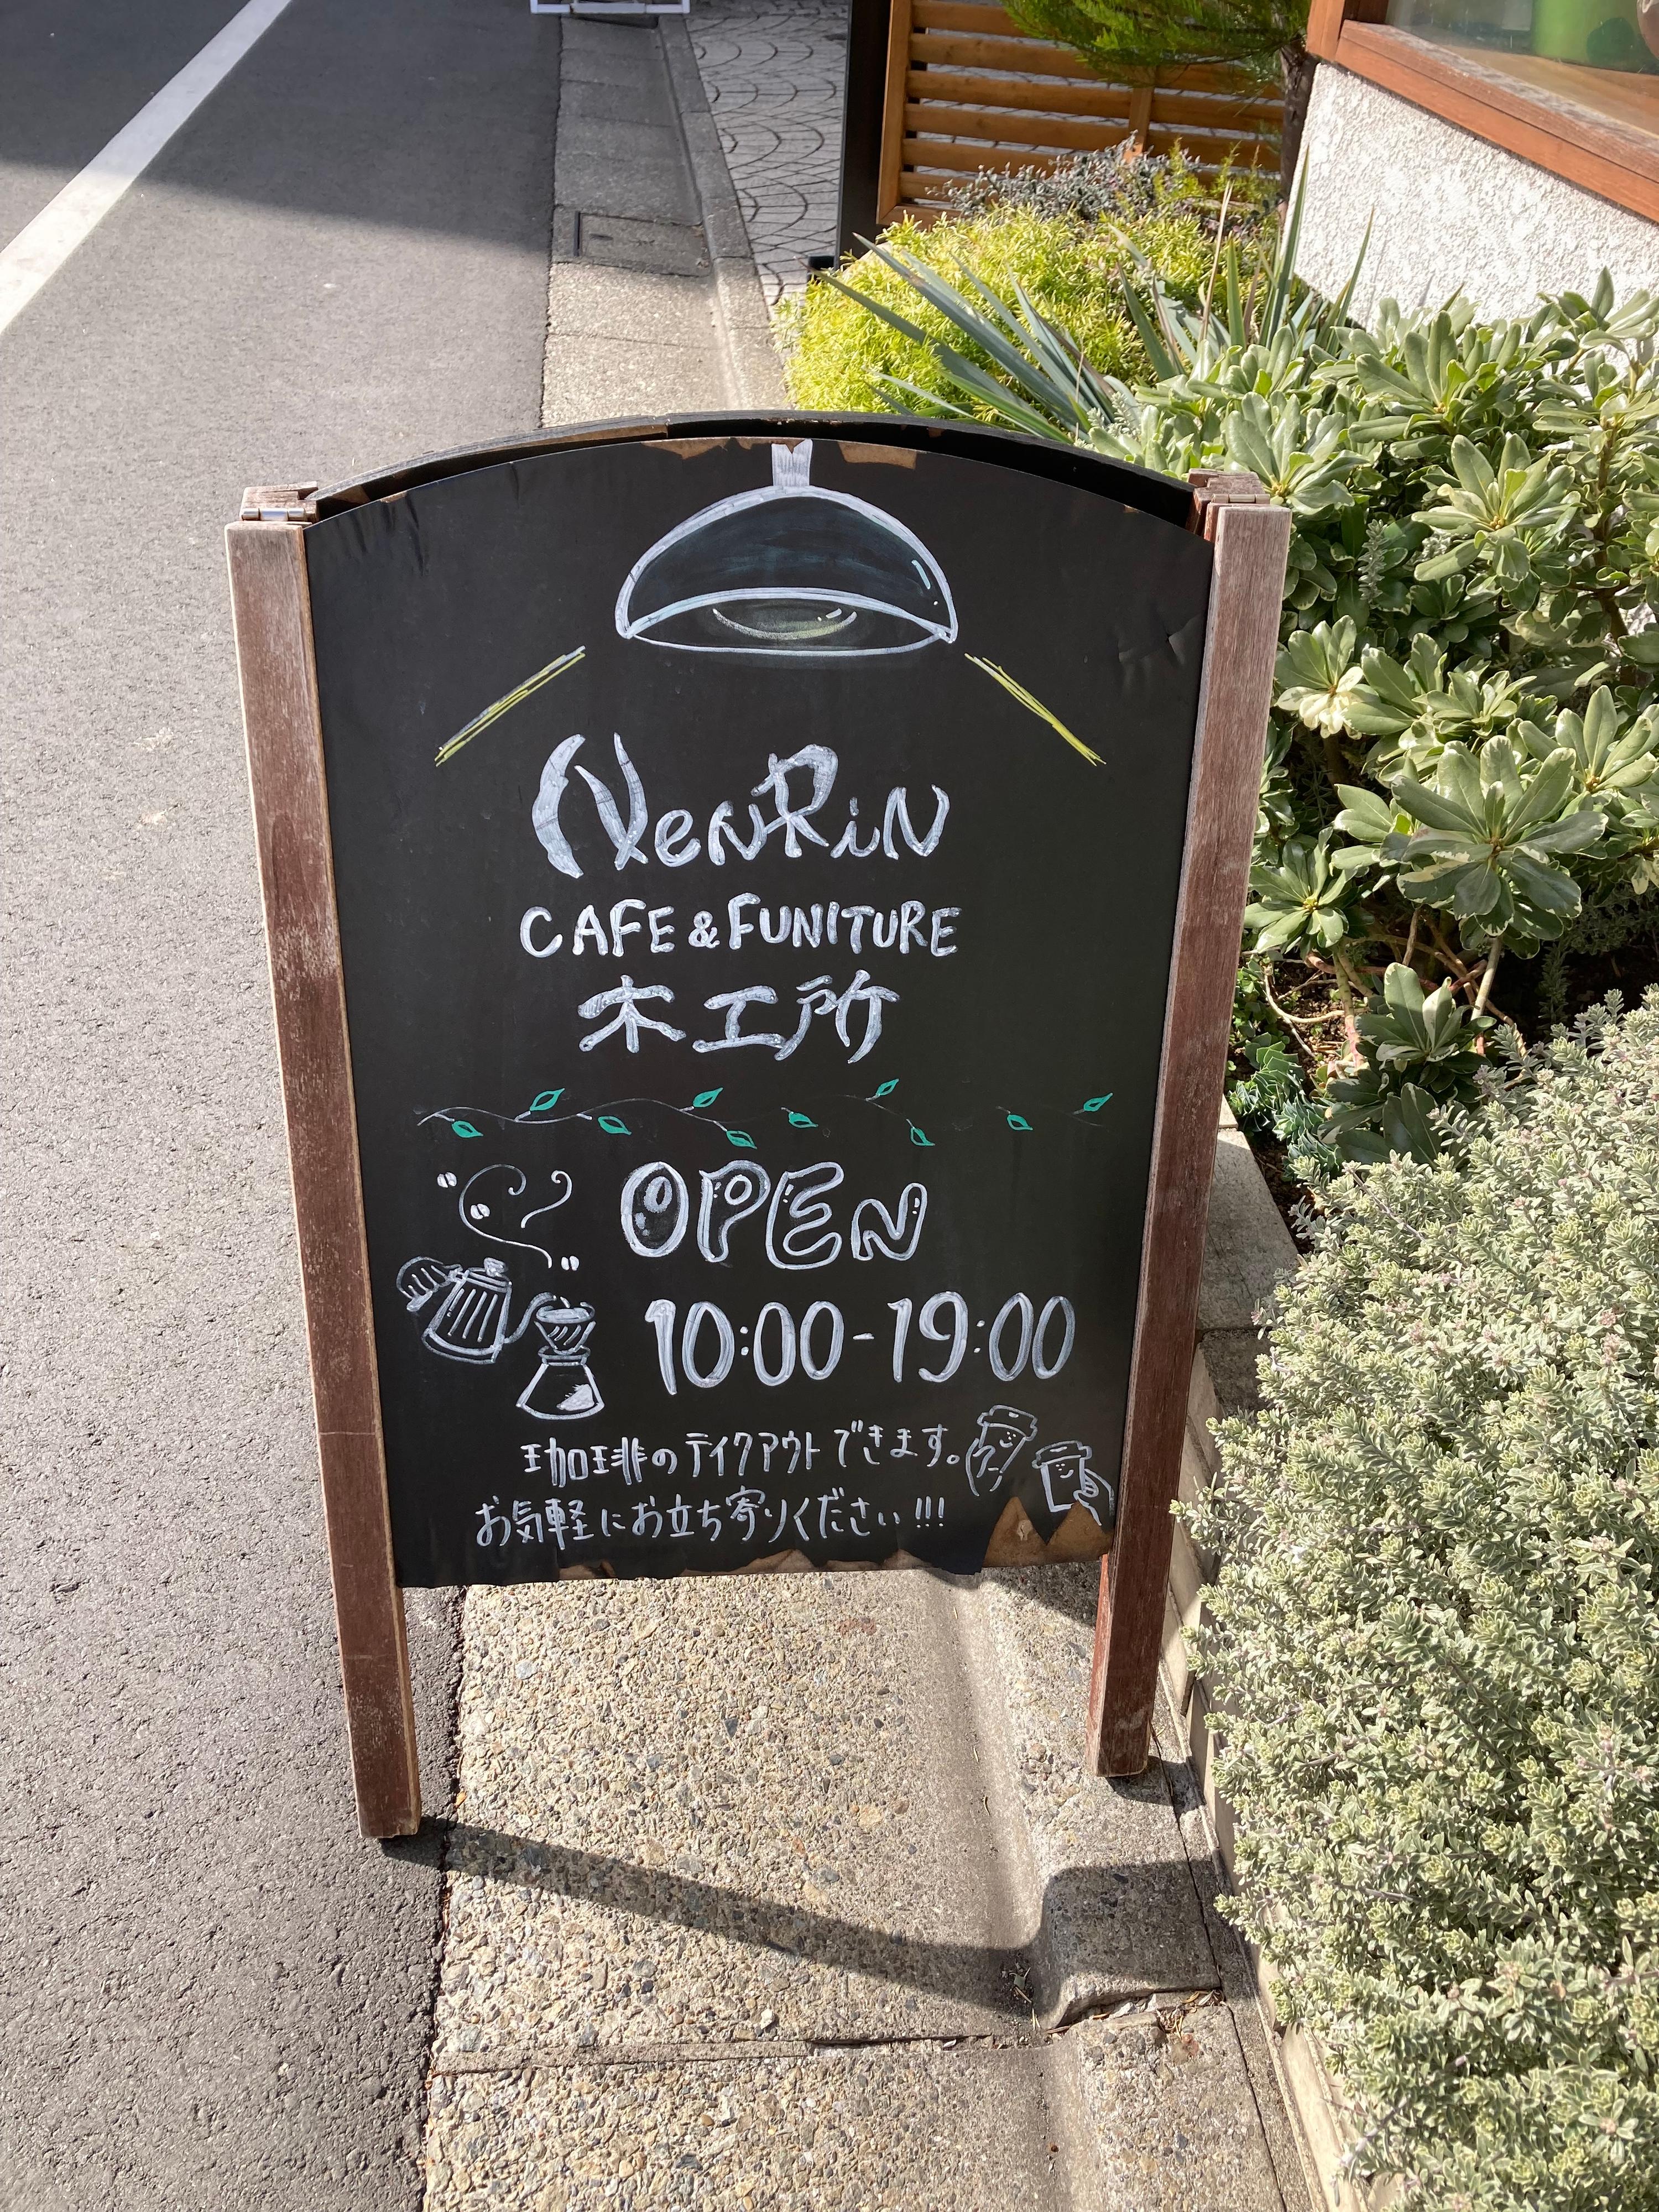 NenRiN
CAFE & FUNITURE
木工所
OPEN
10:00-19:00
珈琲のテイクアウトできます。
お気軽にお立ち寄りください!!!